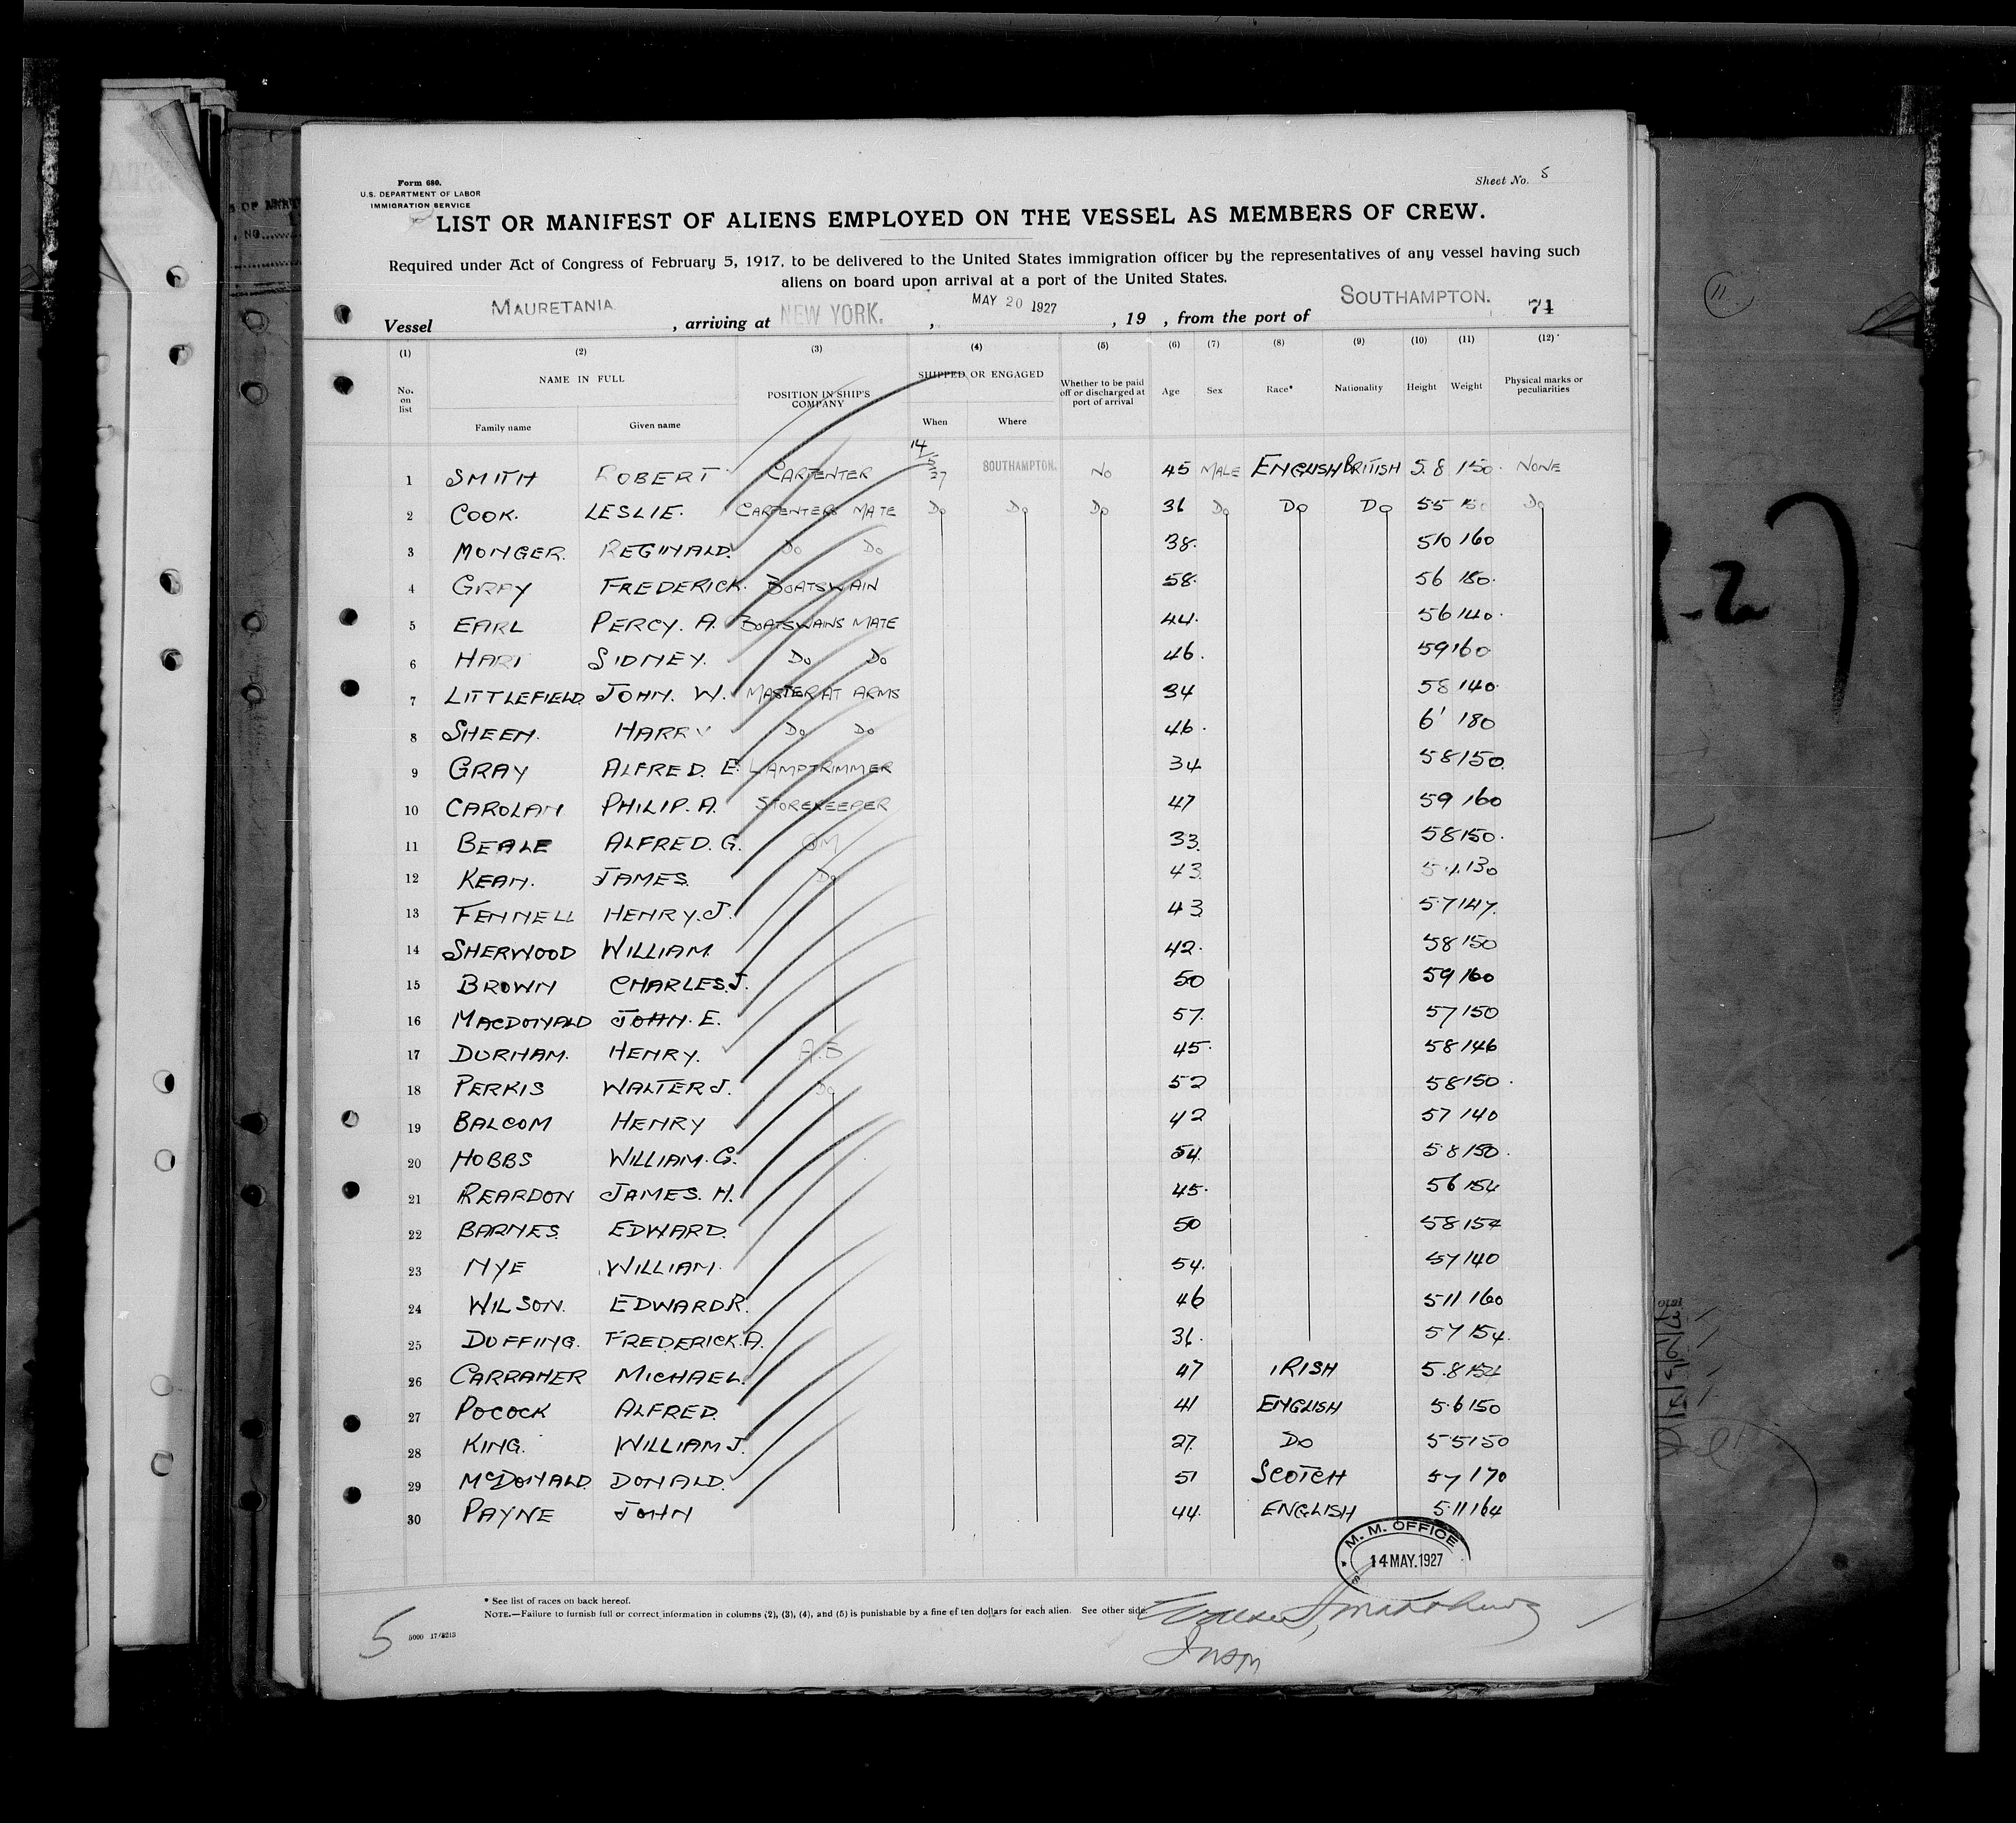 Form 680.
U.S. DEPARTMENT OF LABOR
IMMIGRATION SERVICE
Sheet No. 5
LIST OR MANIFEST OF ALIENS EMPLOYED ON THE VESSEL AS MEMBERS OF CREW.
Required under Act of Congress of February 5, 1917, to be delivered to the United States immigration officer by the representatives of any vessel having such
aliens on board upon arrival at a port of the United States.
Vessel MAURETANIA, arriving at NEW YORK., MAY 20 1927, 19 , from the port of SOUTHAMPTON. 71
(1) (2) (3) (4) (5) (6) (7) (8) (9) (10) (11) (12)
No. on list NAME IN FULL POSITION IN SHIP'S COMPANY SHIPPED OR ENGAGED Whether to be paid off or discharged at port of arrival Age Sex Race* Nationality Height Weight Physical marks or peculiarities
Family name Given name When Where
1 SMITH ROBERT CARPENTER 14/5/27 SOUTHAMPTON. NO 45 MALE ENGLISH BRITISH 5.8 150. NONE
2 COOK. LESLIE. CARPENTERS MATE DO DO DO 36 DO DO DO 55 150 DO
3 MONGER. REGINALD. DO DO 38. 510 160
4 GRAY FREDERICK. BOATSWAIN 58. 56 180.
5 EARL PERCY. A. BOATSWAINS MATE 44. 56 140.
6 HART SIDNEY. DO DO 46. 59 160
7 LITTLEFIELD. JOHN. W. MASTER AT ARMS 34 58 140.
8 SHEEN. HARRY DO DO 46. 6' 180
9 GRAY ALFRED. E. LAMPTRIMMER 34 58 150.
10 CAROLAN PHILIP. A. STOREKEEPER 47 59 160
11 BEALE ALFRED. G. QM 33. 58 150.
12 KEAN. JAMES. DO 43. 130
13 FENNELL HENRY. J. 43 57 147.
14 SHERWOOD WILLIAM. 42. 58 150
15 BROWN CHARLES. J. 50 59 160
16 MACDONALD JOHN. E. 57. 57 150
17 DURHAM. HENRY. A.B 45. 58 146
18 PERKIS WALTER J. DO 52 58 150.
19 BALCOM HENRY 42 57 140
20 HOBBS WILLIAM. G. 54. 58 150.
21 REARDON JAMES. H. 45. 56 154
22 BARNES. EDWARD. 50 58 154
23 NYE WILLIAM. 54. 57 140
24 WILSON. EDWARD R. 46 511 160
25 DUFFING. FREDERICK. A. 36. 57 154.
26 CARRAHER MICHAEL. 47 IRISH 5.8 154
27 POCOCK ALFRED. 41 ENGLISH 5.6 150
28 KING. WILLIAM J. 27. DO 55 150
29 McDONALD. DONALD. 51 SCOTCH 57 170
30 PAYNE JOHN 44. ENGLISH 5.11 164
M. M. OFFICE
14 MAY. 1927
* See list of races on back hereof.
NOTE.—Failure to furnish full or correct information in columns (2), (3), (4), and (5) is punishable by a fine of ten dollars for each alien. See other side.
5
5000 17/2213